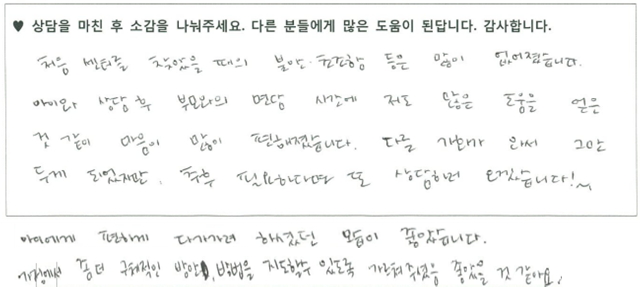 ♥ 상담을 마친 후 소감을 나눠주세요. 다른 분들에게 많은 도움이 된답니다. 감사합니다.
처음 센터를 찾았을 때의 불안·초조함 등은 많이 없어졌습니다.
아이와 상담 후 부모와의 면담 시간에 저도 많은 도움을 얻은
것 같아 마음이 많이 편해졌습니다. 다른 기회가 와서 그만
두게 되었지만, 추후 필요하다면 또 상담하러 오겠습니다!~
아이에게 편하게 다가가려 하셨던 모습이 좋았습니다.
가정에서 좀 더 구체적인 방안, 방법을 지도할 수 있도록 가르쳐 주셨음 좋았을 것 같아요.